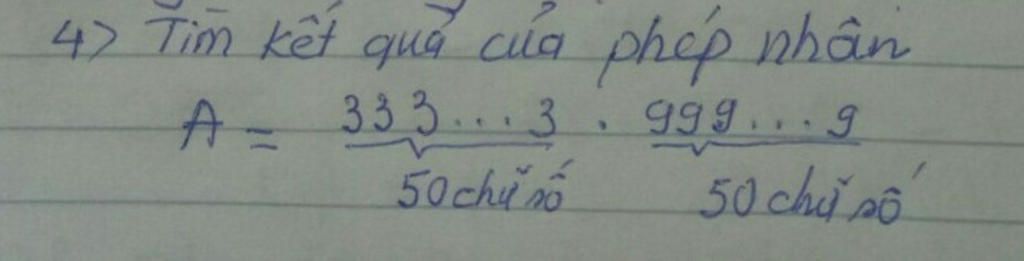 4) Tìm kết quả của phép nhân
A = 333...3 . 999...9
50 chữ số 50 chữ số